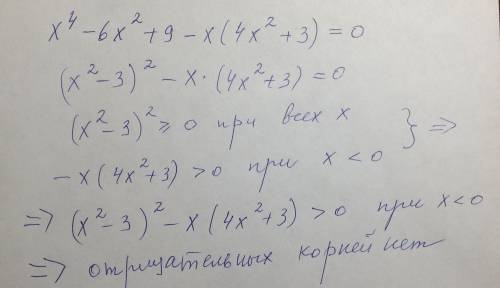 x⁴ − 6x² + 9 − x(4x² + 3) = 0
(x² − 3)² − x · (4x² + 3) = 0
(x² − 3)² ⩾ 0 при всех x
− x(4x² + 3) > 0 при x < 0 } ⇒
⇒ (x² − 3)² − x(4x² + 3) > 0 при x < 0
⇒ отрицательных корней нет